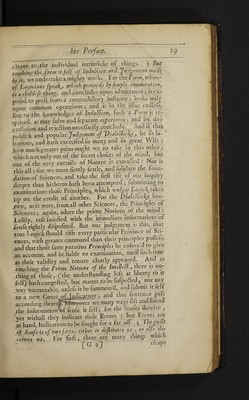 his Preface. 19
adhere to the individual intrinsicks of things. § But
touching the form it self of Induction and Judgement made
by it, we undertake a mighty work. For the Form, where-
of Logicians speak, which proceeds by simple enumeration,
is a childish thing, and concludes upon admittance; is ex-
posed to peril from a contradictory instance; looks only
upon common operations; and is in the issue endless.
But to the knowledges of Induction, such a Form is re-
quired, as may solve and separate experiences; and by due
exclusion and rejection necessarily conclude. And if that
publick and popular Judgement of Dialectiks, be so la-
borious, and hath exercised so many and so great Wits;
how much greater pains ought we to take in this other;
which not only out of the secret closets of the mind, but
out of the very entrails of Nature is extracted? Nor is
this all; for we must firmly settle, and solidate the foun-
dation of Sciences, and take the first rise of our inquiry
deeper than hitherto hath been attempted; submitting to
examination those Principles, which vulgar Logick takes
up on the credit of another. For the Dialecticks bor-
row, as it were, from all other Sciences, the Principles of
Sciences; again, adore the prime Notions of the mind:
Lastly, rest satisfied with the immediate informations of
Sense rightly disposed. But our judgement is this, that
true Logick should visit every particular Province of Sci-
ences, with greater command than their principles possess;
and that those same putative Principles be enforced to give
an account, and be liable to examination, until such time
as their validity and tenure clearly appeared. And as
touching the Prime Notions of the Intellect, there is no-
thing of those, (the understanding left at liberty to it
self) hath congested, but matter to be suspected, nor any
way warrantable, unless it be summon'd, and submit it self
to a new Court of Judicature; and that sentence pass
according thereto. § Moreover we many ways sift and sound
the information of Sense it self; for the Senses deceive,
yet withall they indicate their Errors; but Errors are
at hand, Indications to be sought for a far off. § The guilt
of Sense is of two sorts, either it destitutes us, or else de-
ceives us. For first, there are many things which
[G 2] escape